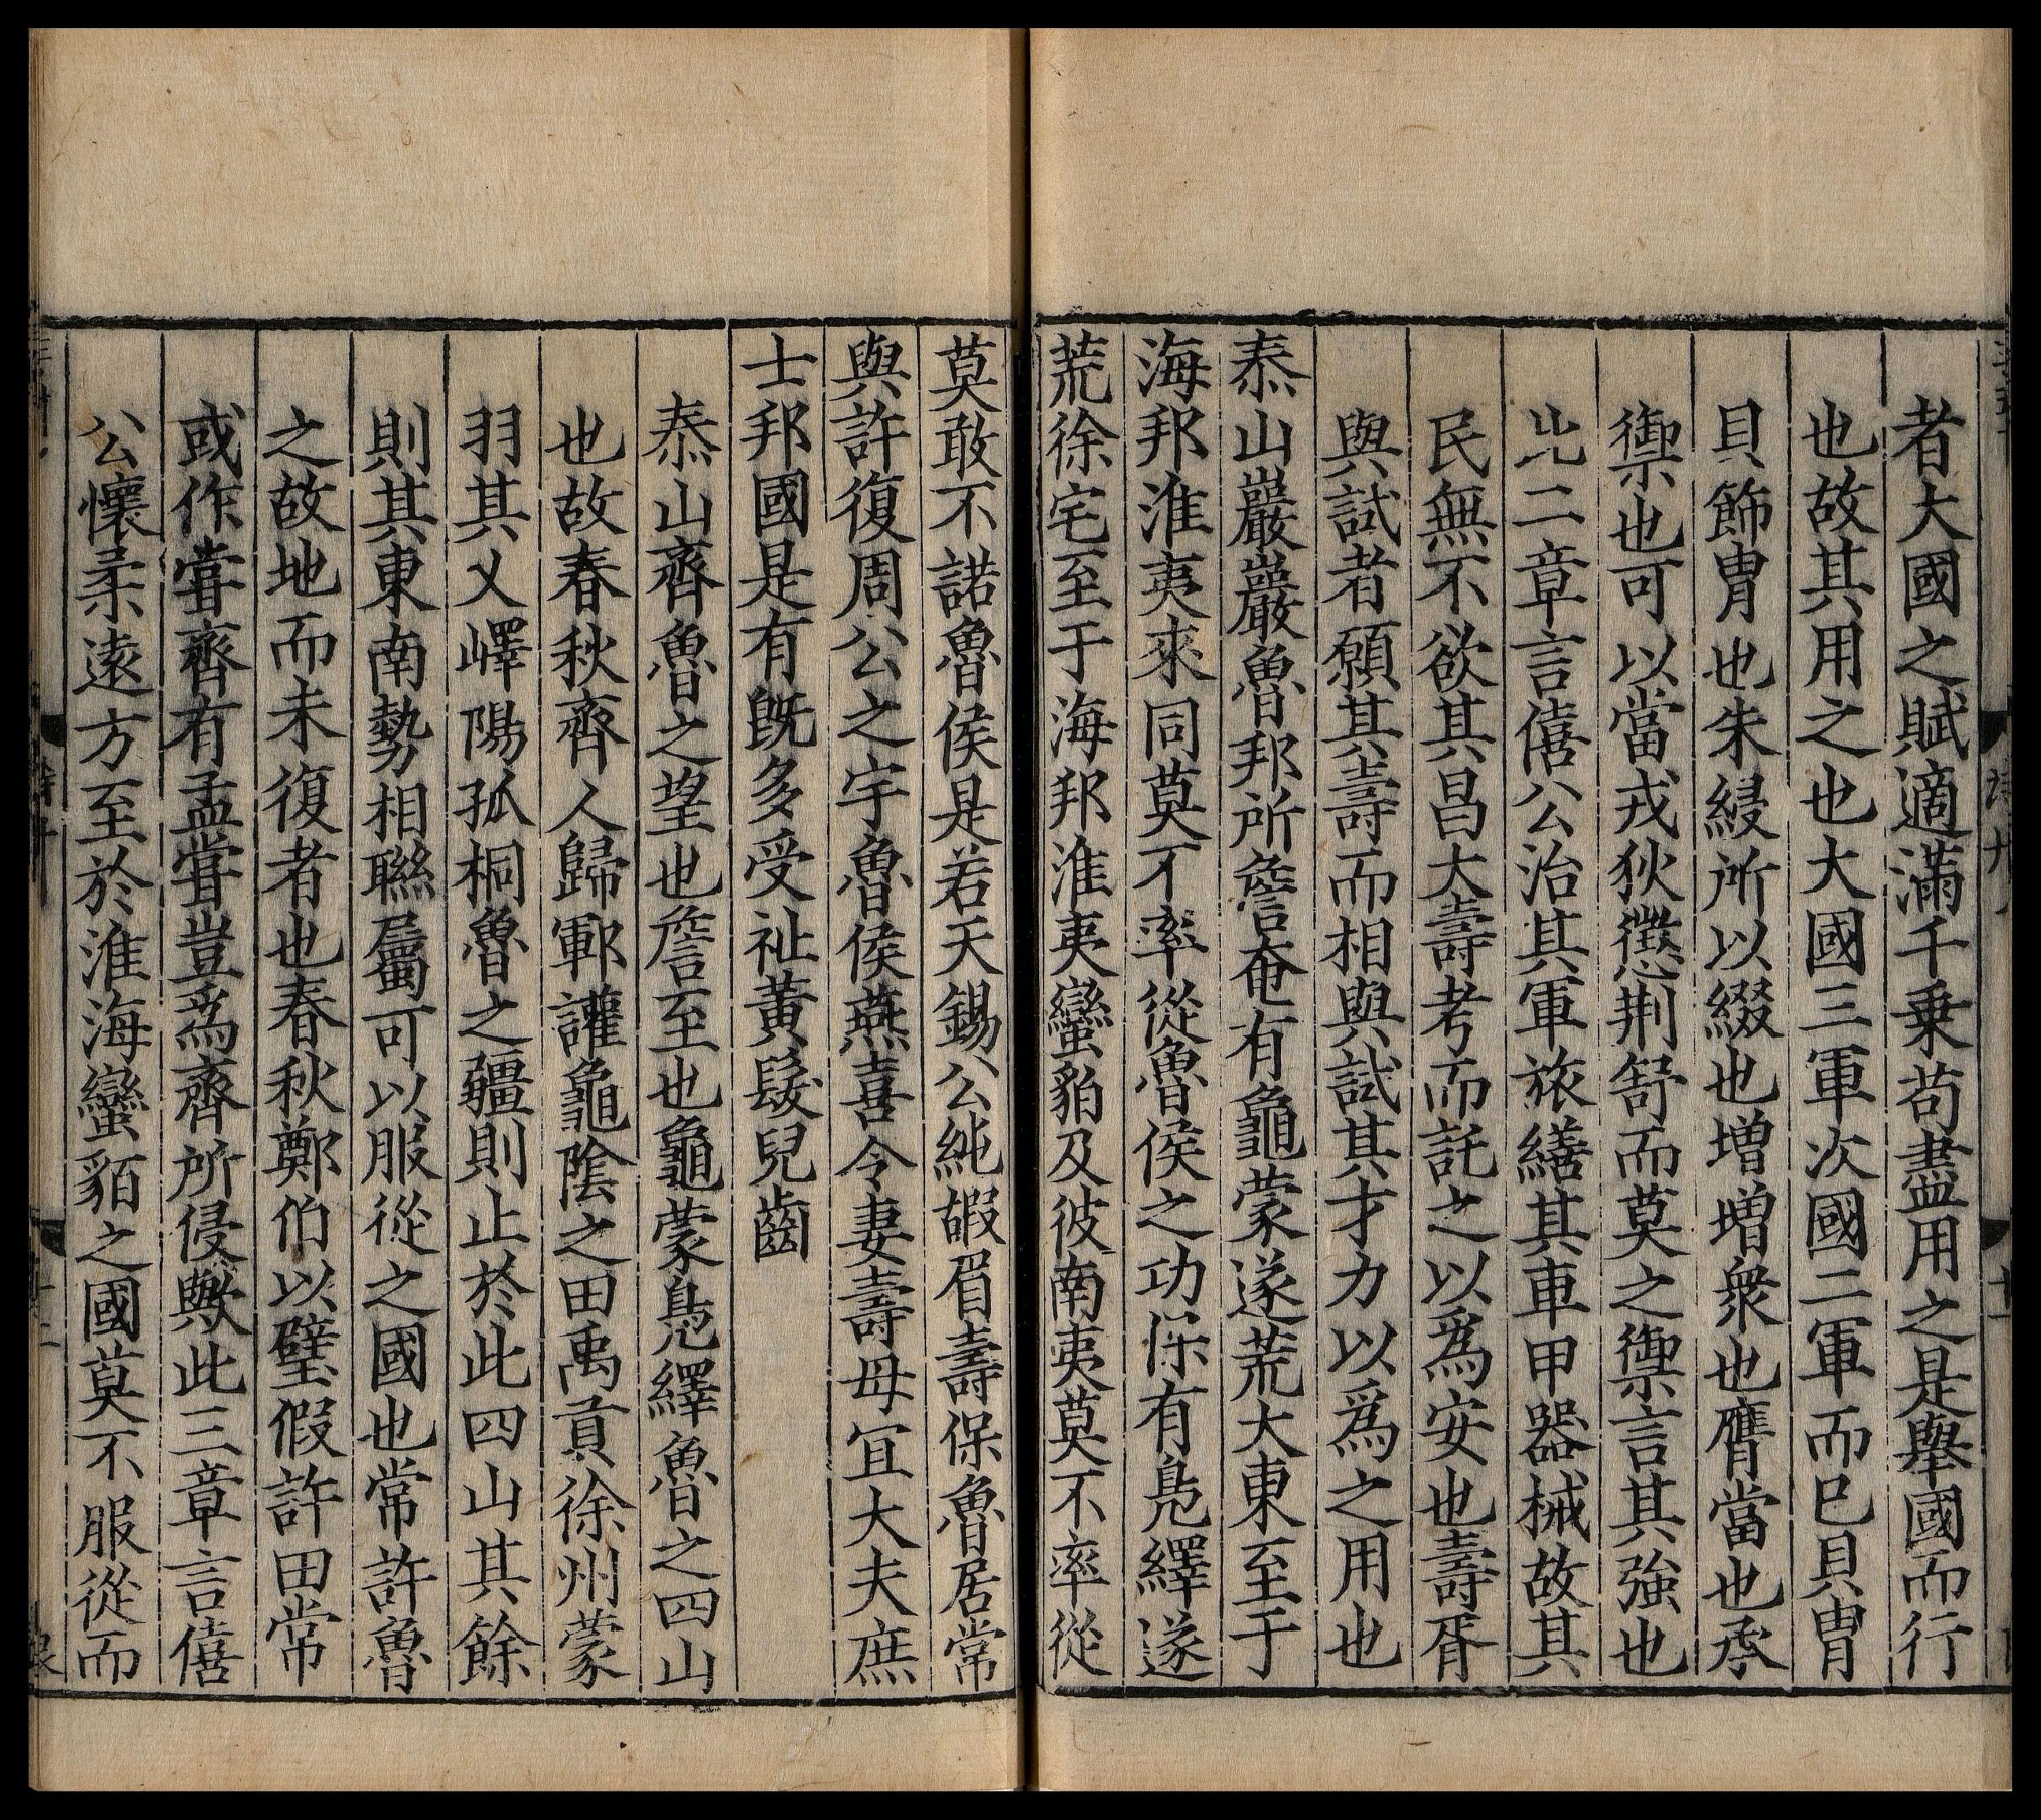 者大國之賦適滿千乗苟盡用之是舉國而行
也故其用之也大國三軍次國二軍而已貝胄
貝飾胄也朱綅所以綴也増増衆也膺當也承
禦也可以當戎狄懲荆舒而莫之禦言其強也
此二章言僖公治其軍旅繕其車甲器械故其
民無不欲其昌大壽考而託之以爲安也壽胥
與試者願其壽而相與試其才力以爲之用也
泰山巖巖魯邦所詹奄有龜蒙遂荒大東至于
海邦淮夷來同莫不率從魯侯之功保有鳧繹遂
荒徐宅至于海邦淮夷蠻貊及彼南夷莫不率從
莫敢不諾魯侯是若天錫公純嘏眉壽保魯居常
與許復周公之宇魯侯燕喜令妻壽母宜大夫庶
士邦國是有既多受祉黃髮兒齒
泰山齊魯之望也詹至也龜蒙鳧繹魯之四山
也故春秋齊人歸鄆讙龜隂之田禹貢徐州蒙
羽其乂嶧陽孤桐魯之疆則止於此四山其餘
則其東南勢相聯屬可以服從之國也常許魯
之故地而未復者也春秋鄭伯以璧假許田常
或作甞齊有孟甞豈爲齊所侵歟此三章言僖
公懷柔遠方至於淮海蠻貊之國莫不服從而